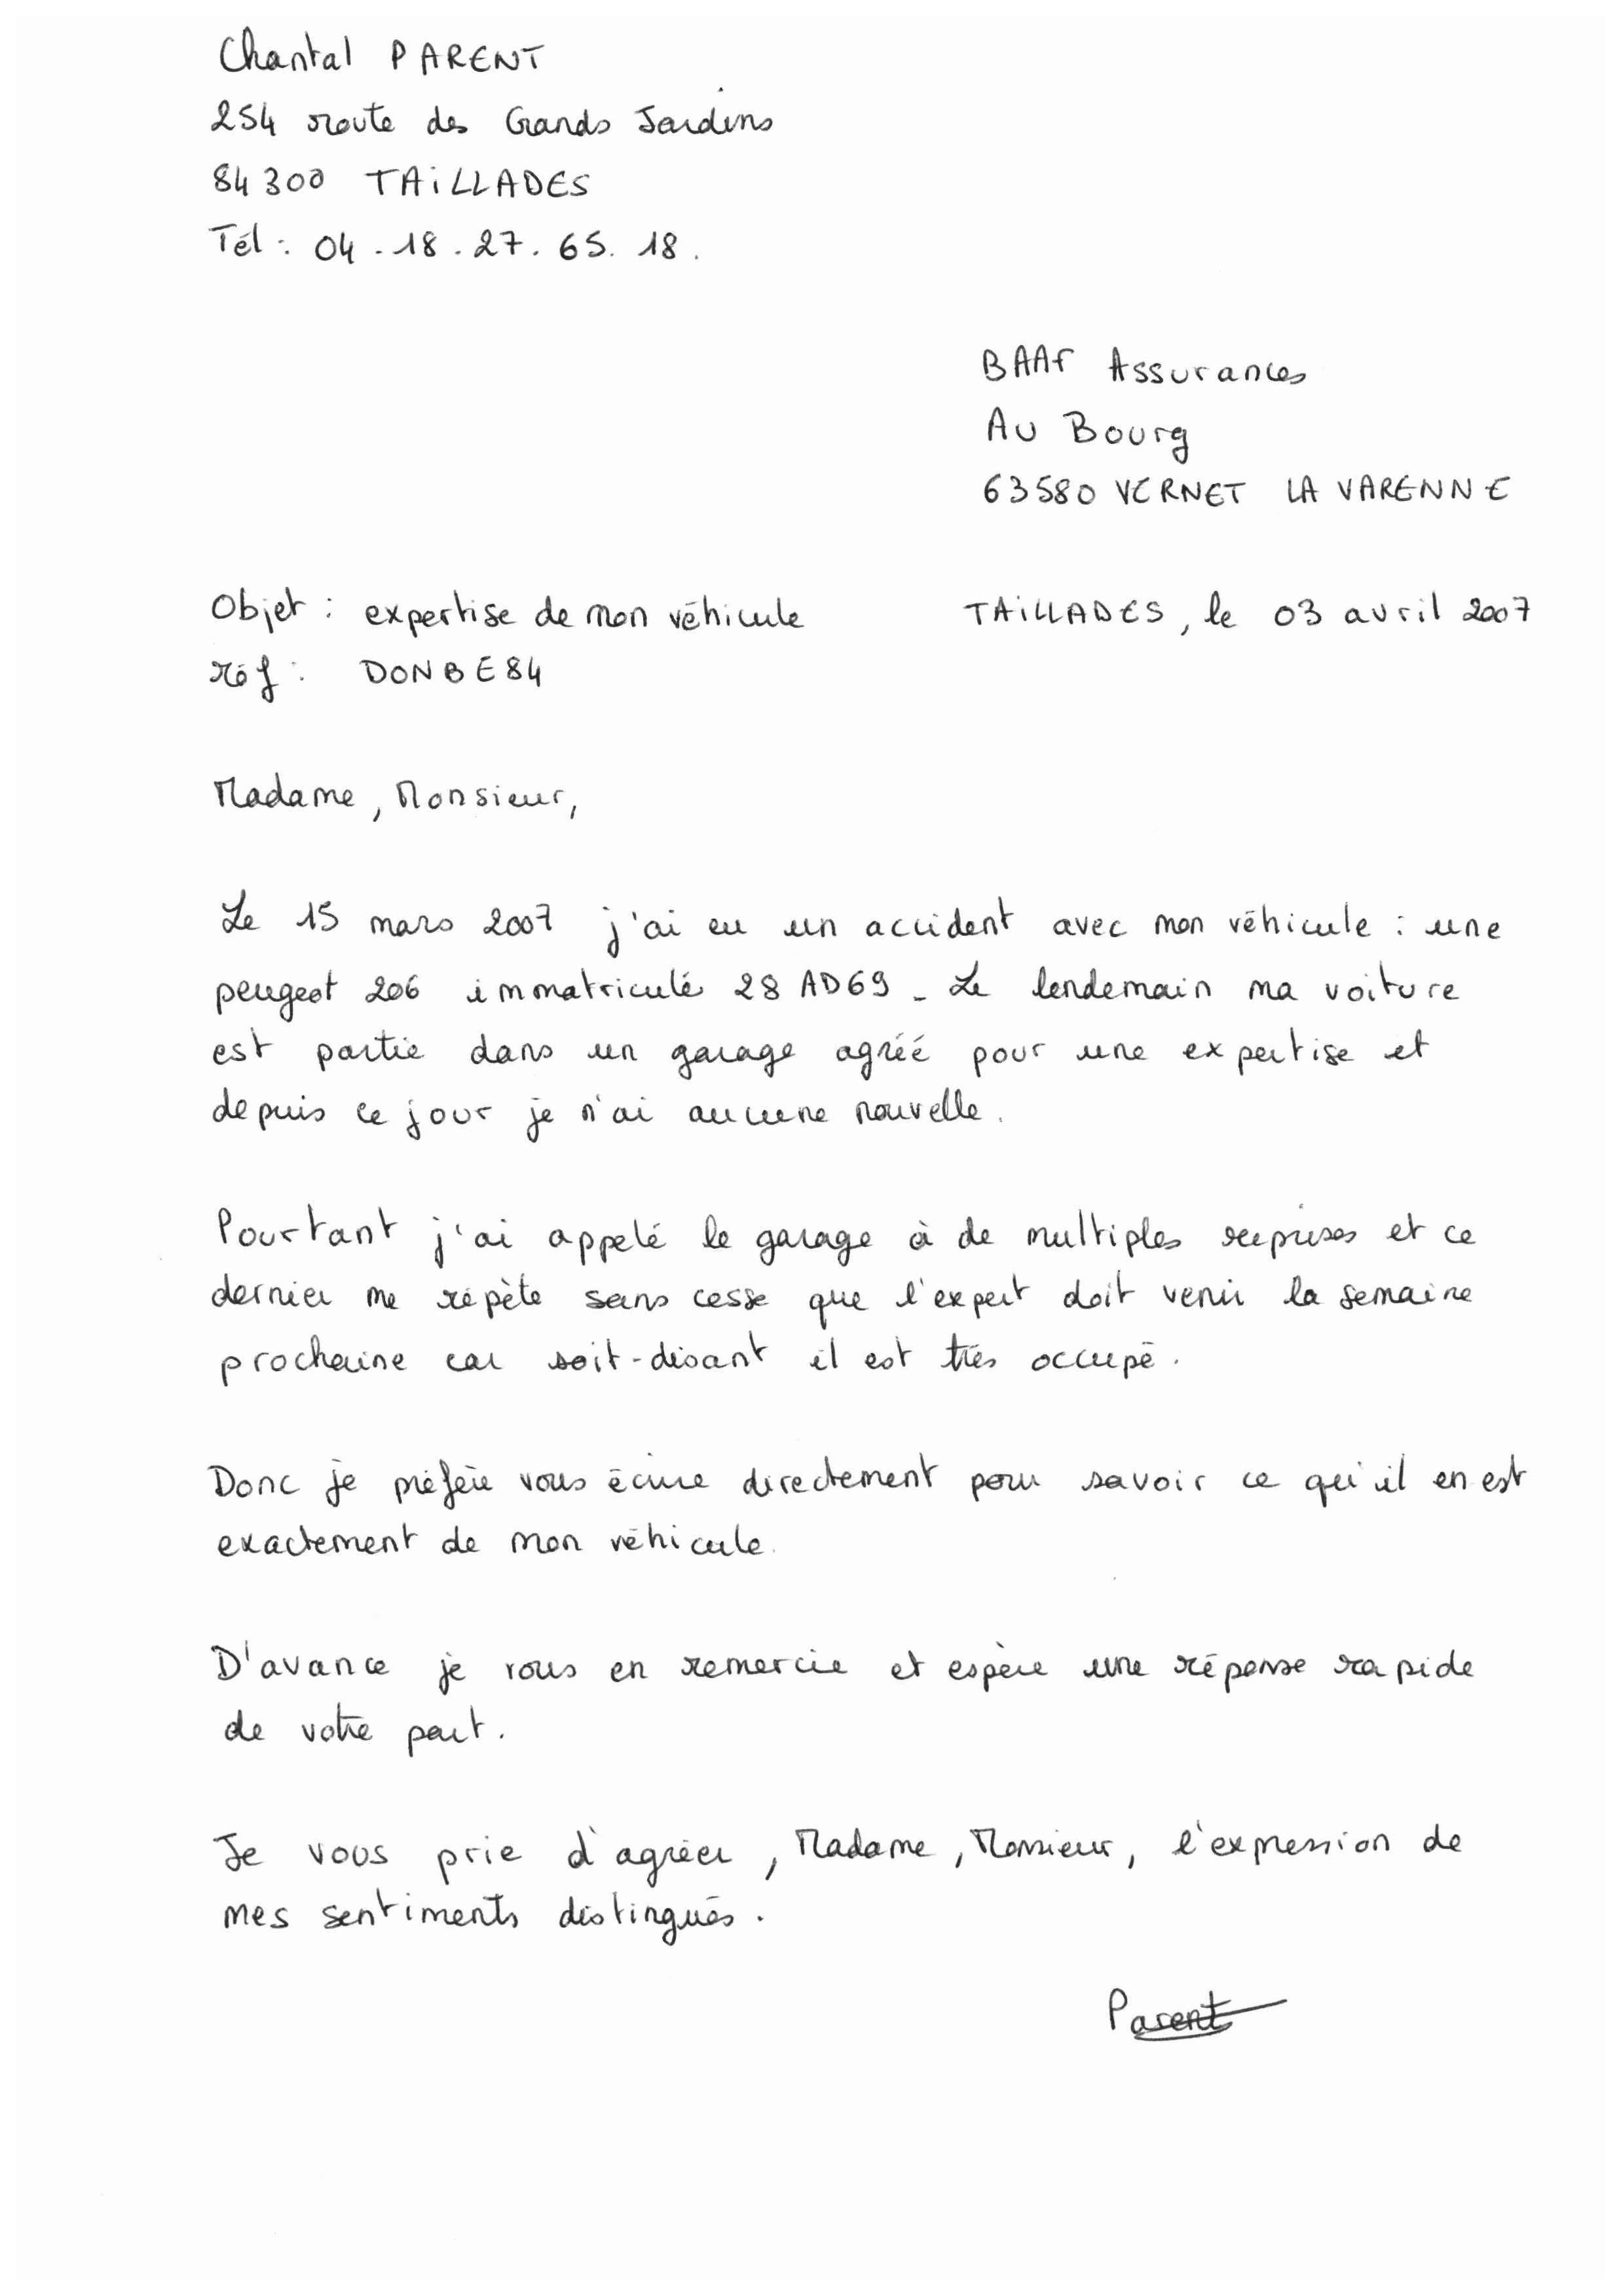 Chantal PARENT
254 route des Grands Jardins
84300 TAILLADES
Tél : 04.18.27.65.18.
BAAF Assurances
Au Bourg
63580 VERNET LA VARENNE
Objet : expertise de mon véhicule
TAILLADES, le 03 avril 2007
réf : DONBE84
Madame, Monsieur,
Le 15 mars 2007 j'ai eu un accident avec mon véhicule : une
peugeot 206 immatriculé 28 AD69 - Le lendemain ma voiture
est partie dans un garage agréé pour une expertise et
depuis ce jour je n'ai aucune nouvelle.
Pourtant j'ai appelé le garage à de multiples reprises et ce
dernier me répète sans cesse que l'expert doit venir la semaine
prochaine car soit-disant il est très occupé.
Donc je préfère vous écrire directement pour savoir ce qu'il en est
exactement de mon véhicule.
D'avance je vous en remercie et espère une réponse rapide
de votre part.
Je vous prie d'agréer, Madame, Monsieur, l'expression de
mes sentiments distingués.
Parent